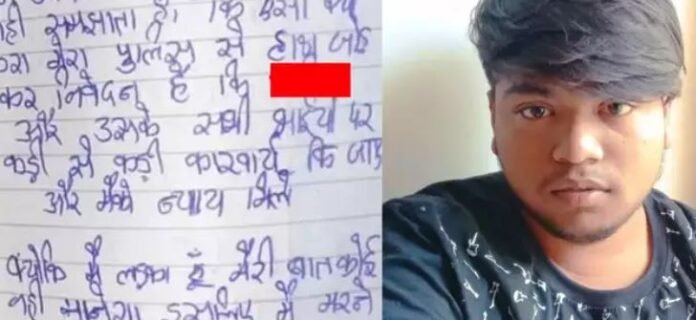 नही समझाता है, कि
मेरा पुलिस से हाथ जोड़
कर निवेदन है कि
और उसके सभी भाईयो पर
कड़ी से कड़ी कारवाई कि जाए
और मैको न्याय मिले
क्योकि मै लड़का हूँ मेरी बात कोई
नही मानेगा इसलिए मै मरने